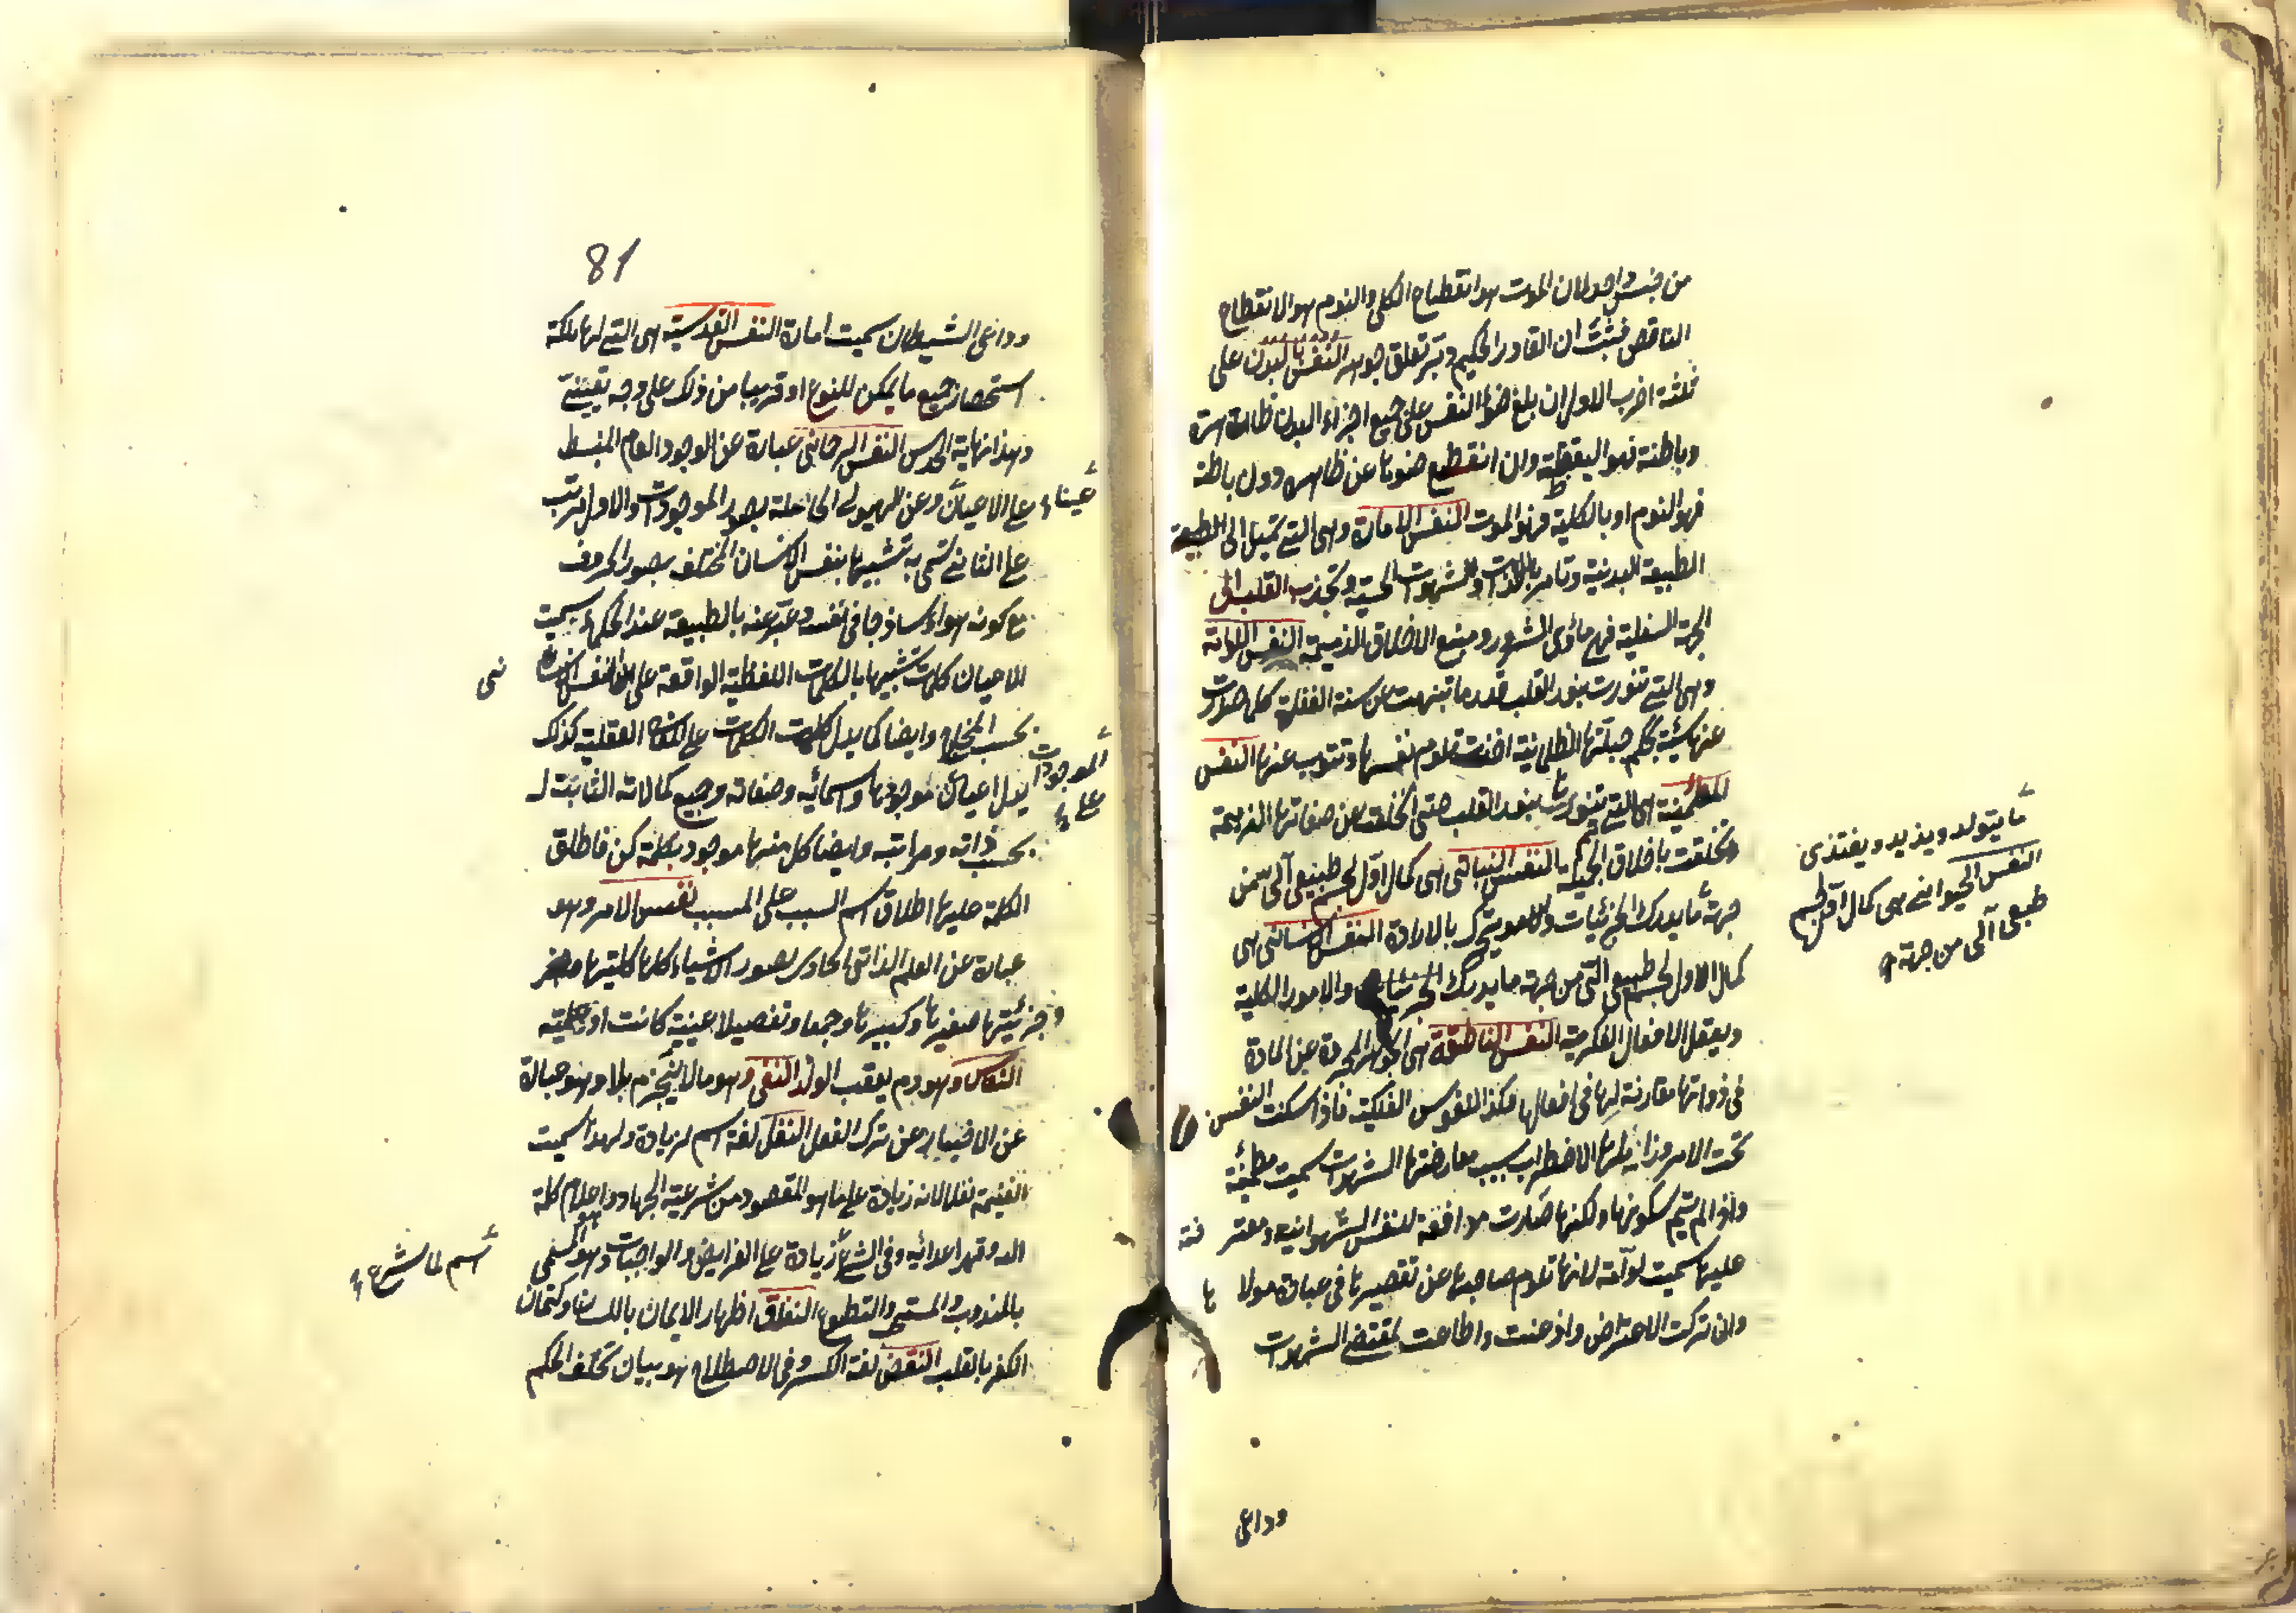 من جنس واحد لان الموت هو انقطاع الكلى والنوم هو الانقطاع
الناقص فثبت ان القادر الحكيم دبر تعلق جوهر النفس بالبدن على
ثلثة اضرب الاول ان بلغ ضوء النفس على جميع اجزاء البدن ظاهره
وباطنه فهو اليقظة وان انقطع ضوءها عن ظاهره دون باطنه
فهو النوم او بالكلية فهو الموت النفس الامارة وهى التى تميل الى الطبيعة
الطبيعة البدنية وتامر باللذات والشهوات الحسية وتجذب القلب الى
الجهة السفلية فهى مأوى الشرور ومنبع الاخلاق الذميمة النفس اللوامة
وهى التى تنورت بنور القلب قدر ما تنبهت عن سنة الغفلة كلما صدرت
عنها سيئة بحكم جبلتها الظلمانية اخذت تلوم نفسها وتتوب عنها النفس
المطمئنة هى التى تنورت بنور القلب حتى انخلعت عن صفاتها الذميمة
وتخلقت باخلاق الحميدة النفس النباتى هى كمال اول لجسم طبيعى آلى من
جهة ما يدرك الجزئيات ويتحرك بالارادة النفس الانسانى هى
كمال الاول لجسم طبيعى آلى من جهة ما يدرك والامور الكلية
ويفعل الافعال الفكرية النفس الناطقة هى الجوهر المجردة عن المادة
فى ذواتها مقارنة لها فى افعالها وكذا النفوس الفلكية فاذا سكنت النفس
تحت الامر وزايلها الاضطراب بسبب معارضتها الشهوات سميت مطمئنة
واذا لم يتم سكونها ولكنها صارت مدافعة للنفس الشهوانية ومعترضة
عليها سميت لوامة لانها تلوم صاحبها عن تقصيرها فى عبادة مولاها
وان تركت الاعتراض واذعنت واطاعت لمقتضى الشهوات
ودواعى
ما يتولد ويزيد ويغتذى
النفس الحيوانى هى كمال اول لجسم
طبيعى آلى من جهة
81
ودواعى الشيطان سميت امارة النفس القدسية هى التى لها ملكة
استحضار جميع ما يمكن للنوع او قريبا من ذلك على وجه يقينى
وهذا نهاية الحدس النفس الرحمانى عبارة عن الوجود العام المنبسط
على الاعيان عينا وعن الهيولى الحاملة بصور الموجودات والاول مرتب
على الثانى سمى به تشبيها بنفس الانسان المختلف بصور الحروف
مع كونه هواء ساذجا فى نفسه وعبر عنه بالطبيعة عند الحكماء سميت
الاعيان كلمات تشبيها بالكلمات اللفظية الواقعة على النفس الانسانى
بحسب المخارج وايضا كما يدل الكلمات على المعانى العقلية كذلك
يدل اعيان الموجودات على موجدها واسمائه وصفاته وجميع كمالاته الثابتة له
بحسب ذاته ومراتبه وايضا كل منها موجود بكلمة كن فاطلق
الكلمة عليها اطلاق اسم السبب على المسبب نفس الامر وهو
عبارة عن العلم الذاتى الحاوى بصور الاشياء كلها كليتها
وجزئيتها صغيرها وكبيرها وجمعا وتفصيلا عينية كانت او علمية
النفاس وهو دم يعقب الولد النفى وهو ما لا ينجزم بلا وهو عبارة
عن الاخبار عن ترك الفعل النفل لغة اسم لزيادة ولهذا سميت
الغنيمة نفلا لانه زيادة على ما هو المقصود من شرعية الجهاد وهو اعلاء كلمة
الله وقهر اعدائه وفى الشرع اسم لما شرع زيادة على الفرايض والواجبات وهو المسمى
بالمندوب والمستحب والتطوع النفاق اظهار الايمان باللسان وكتمان
الكفر بالقلب النقض لغة الكسر وفى الاصطلاح هو بيان تخلف الحكم